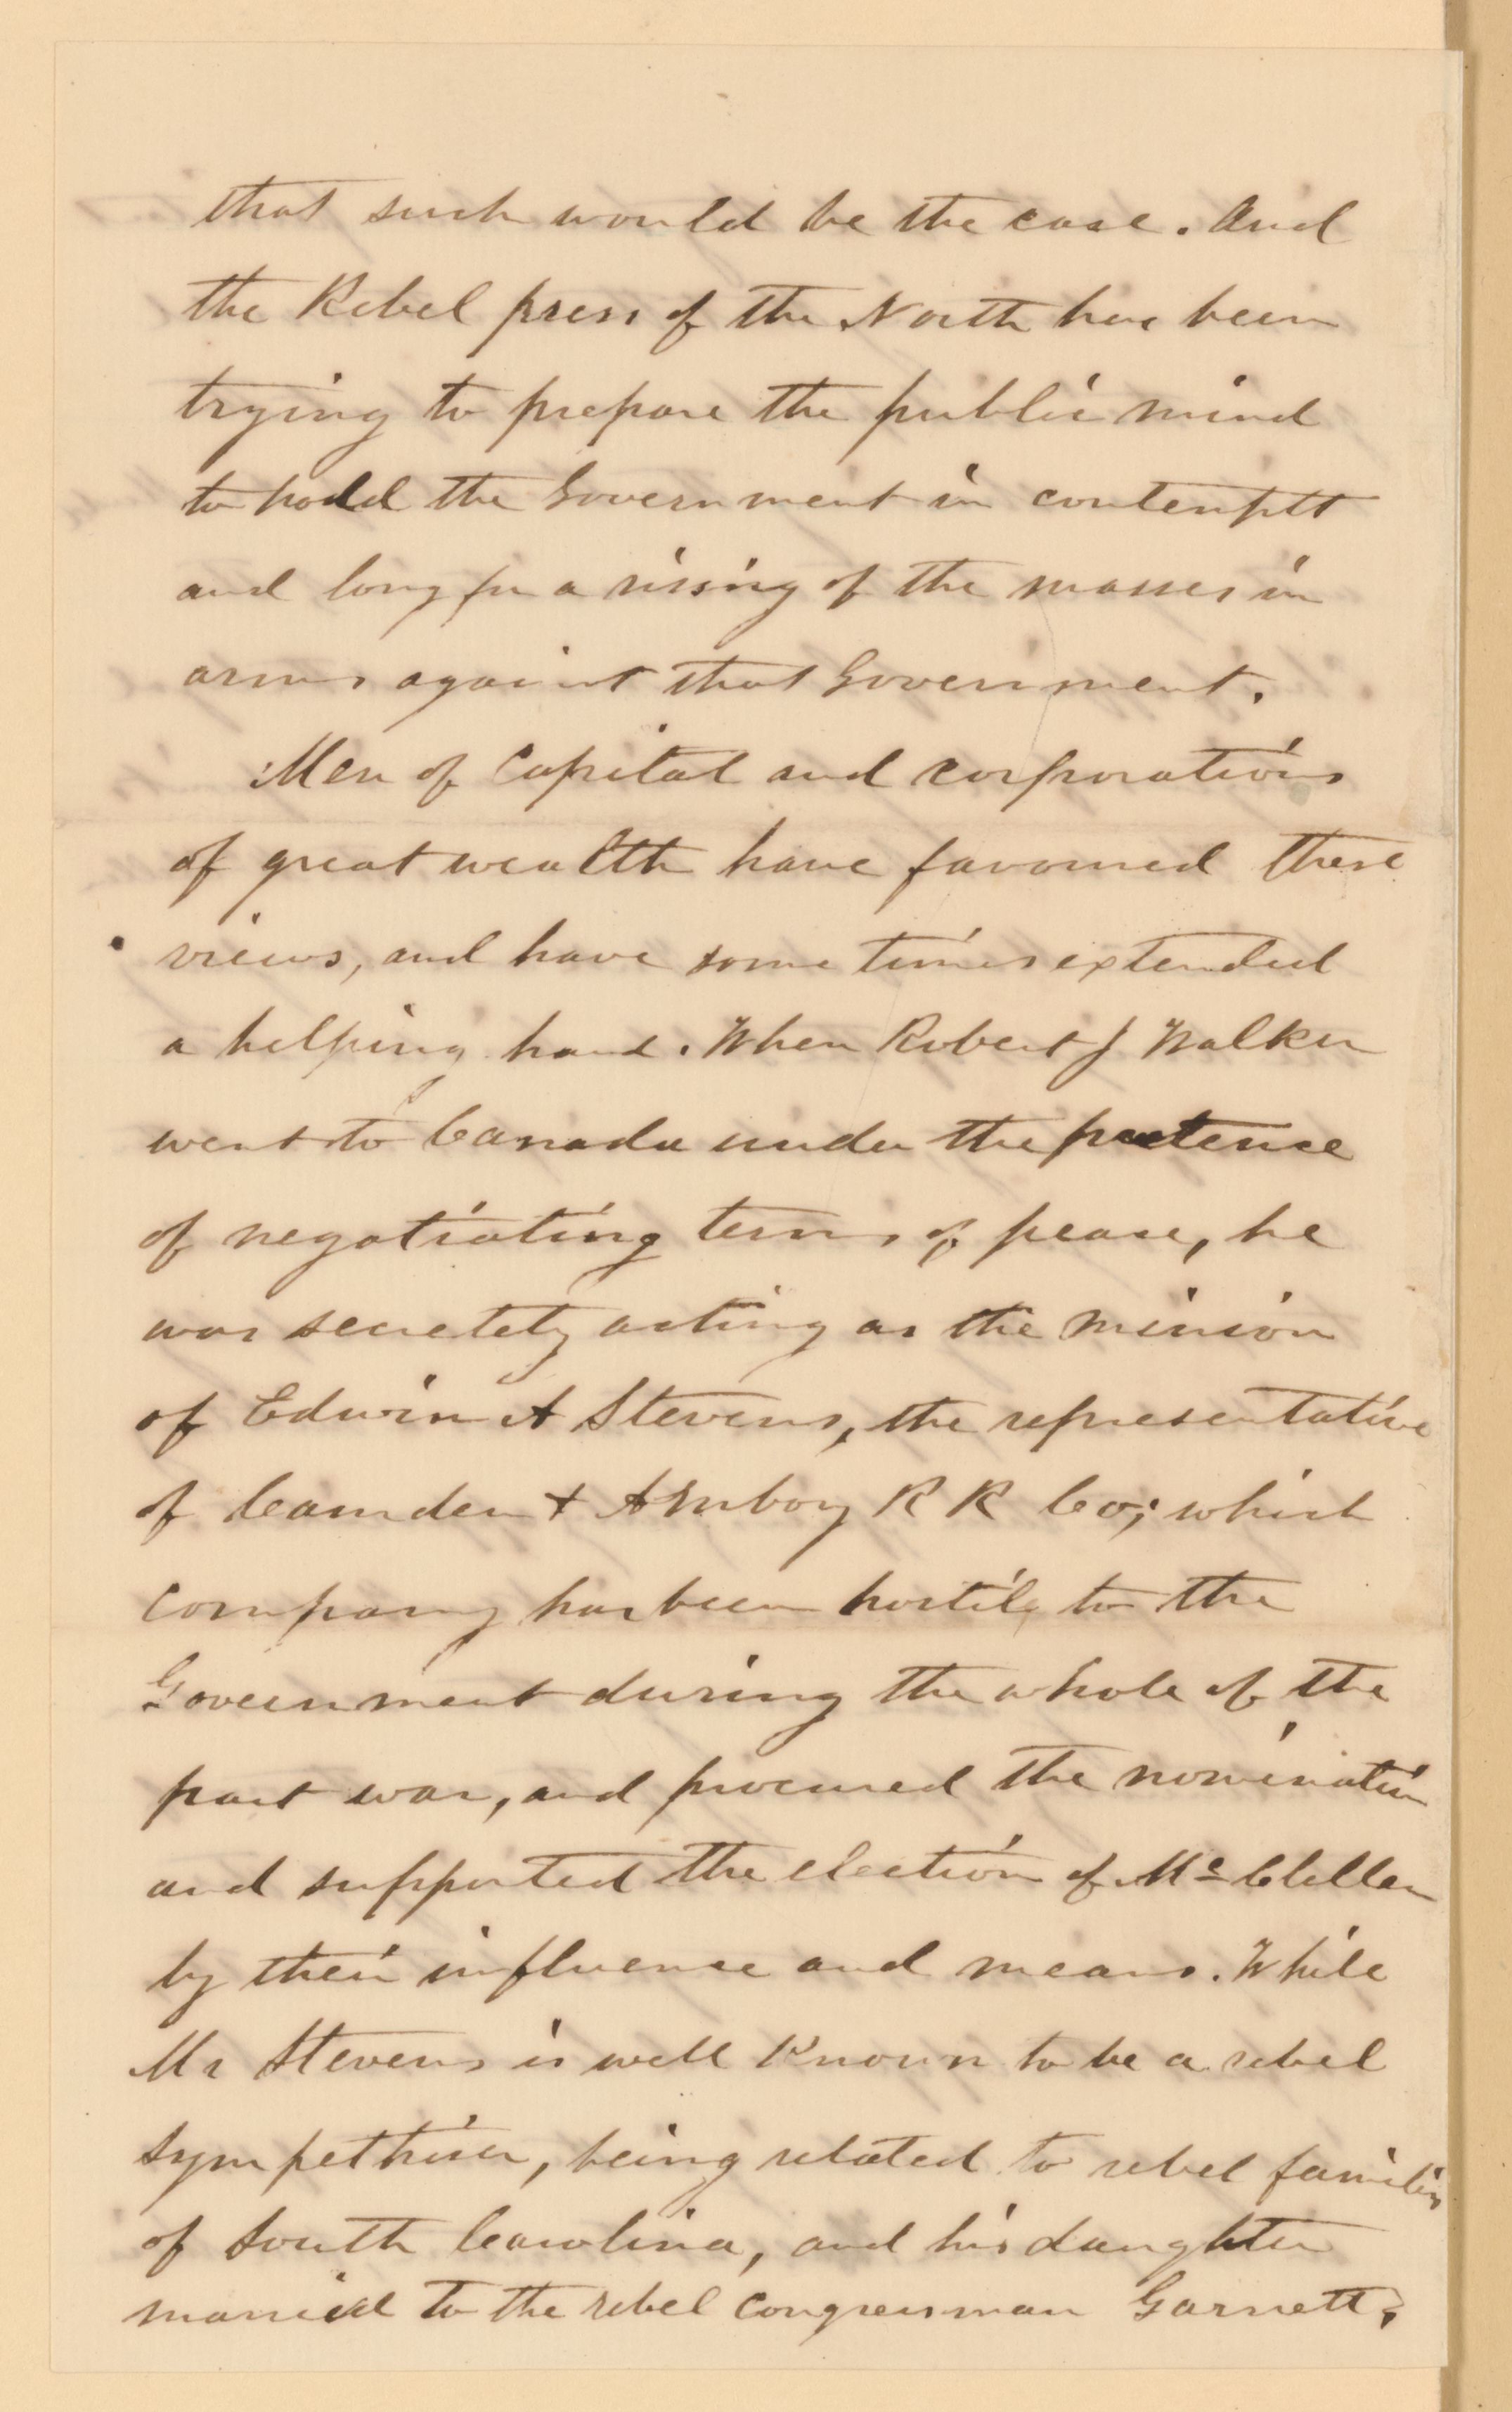 that such would be the case. And
the Rebel press of the North have been
trying to prepare the public mind
to hodd the Government in contemptt
and long for a rising of the masses in
arms against that Government.
Men of Capital and corporations
of great wealth have favoured these
views, and have some times extended
a helping hand. When Robert J Walker
went to Canada under the pretence
of negotiating terms of peace, he
was secretety acting as the minion
of Edwin A Stevens, the representative
of Camden & Amboy R R Co; which
Company has been hostile to the
Government during the whole of the
past war, and procured the nomination
and supported the election of McClellan
by their influence and means. While
Mr Stevens is well known to be a rebel
sympethiser, being related to rebel families
of South Carolina, and his daughter
married to the rebel Congressman Garnett;